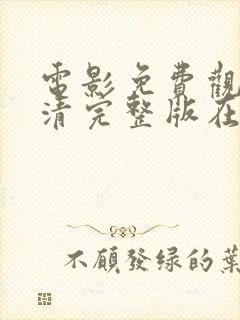 電影免費觀
清完整版在
不願發绿的葉